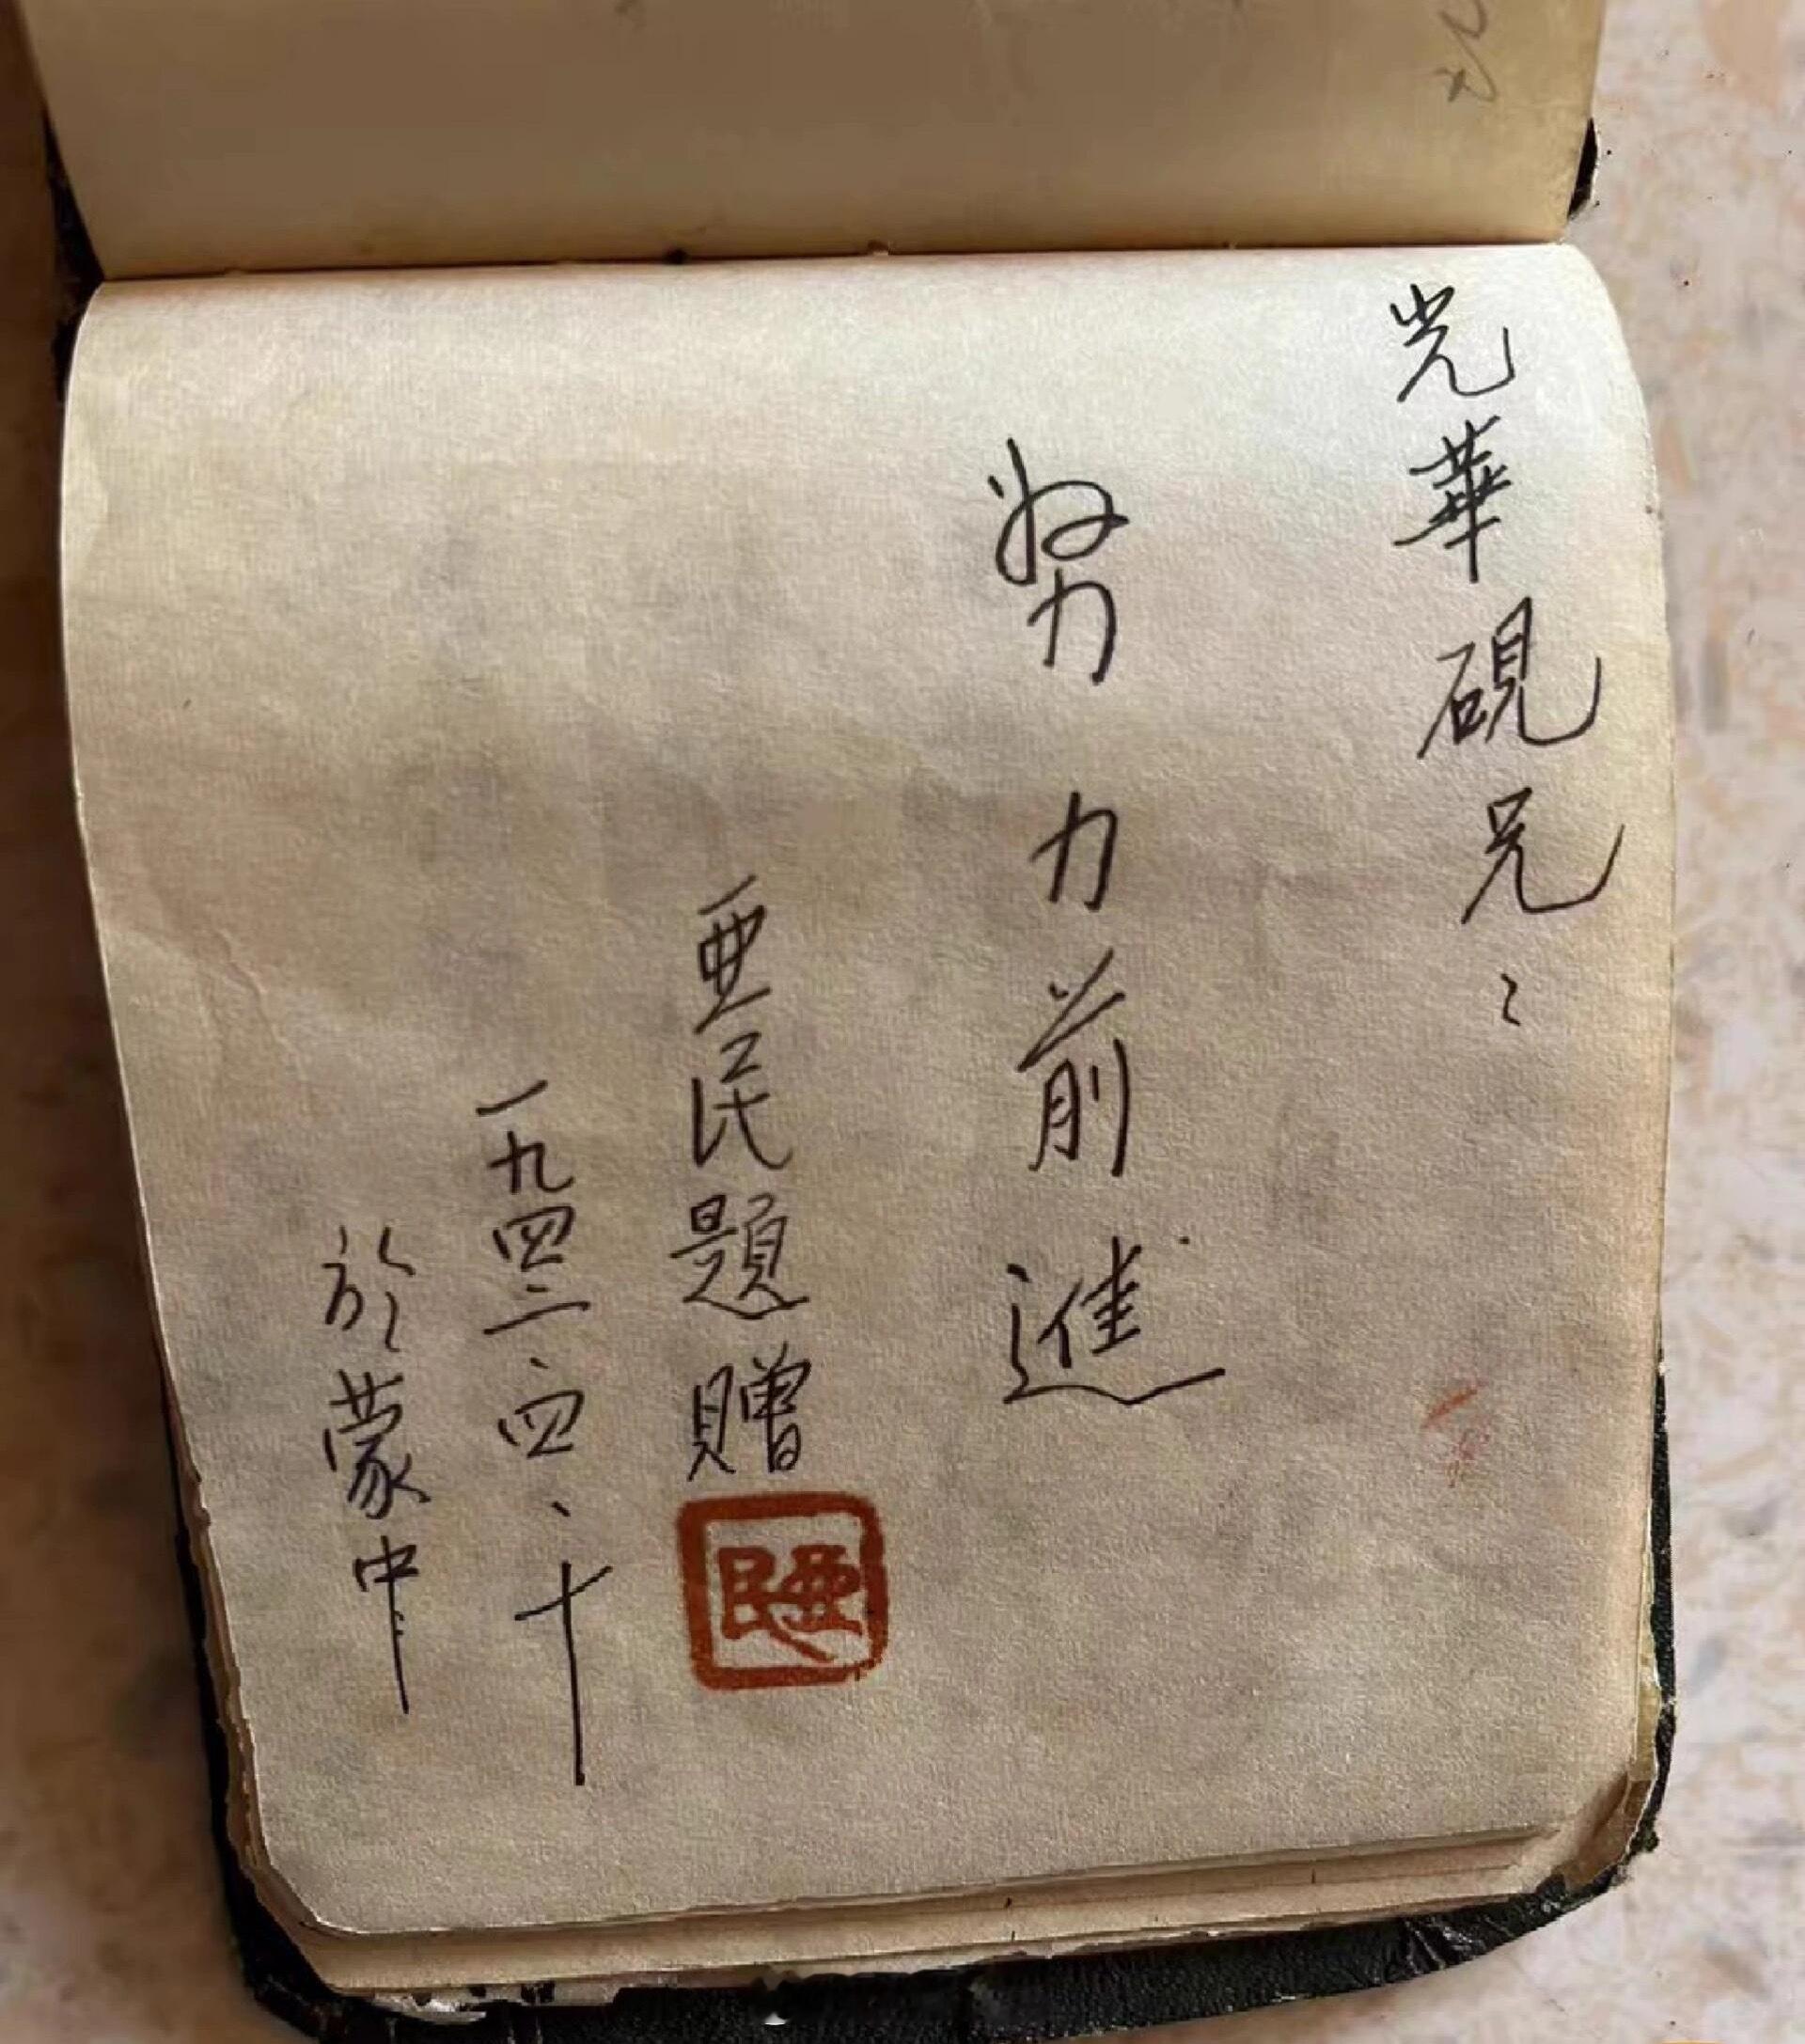 光華硯兄：
努力前進
亜民題贈
一九四二、四、十
於蒙中
亜民